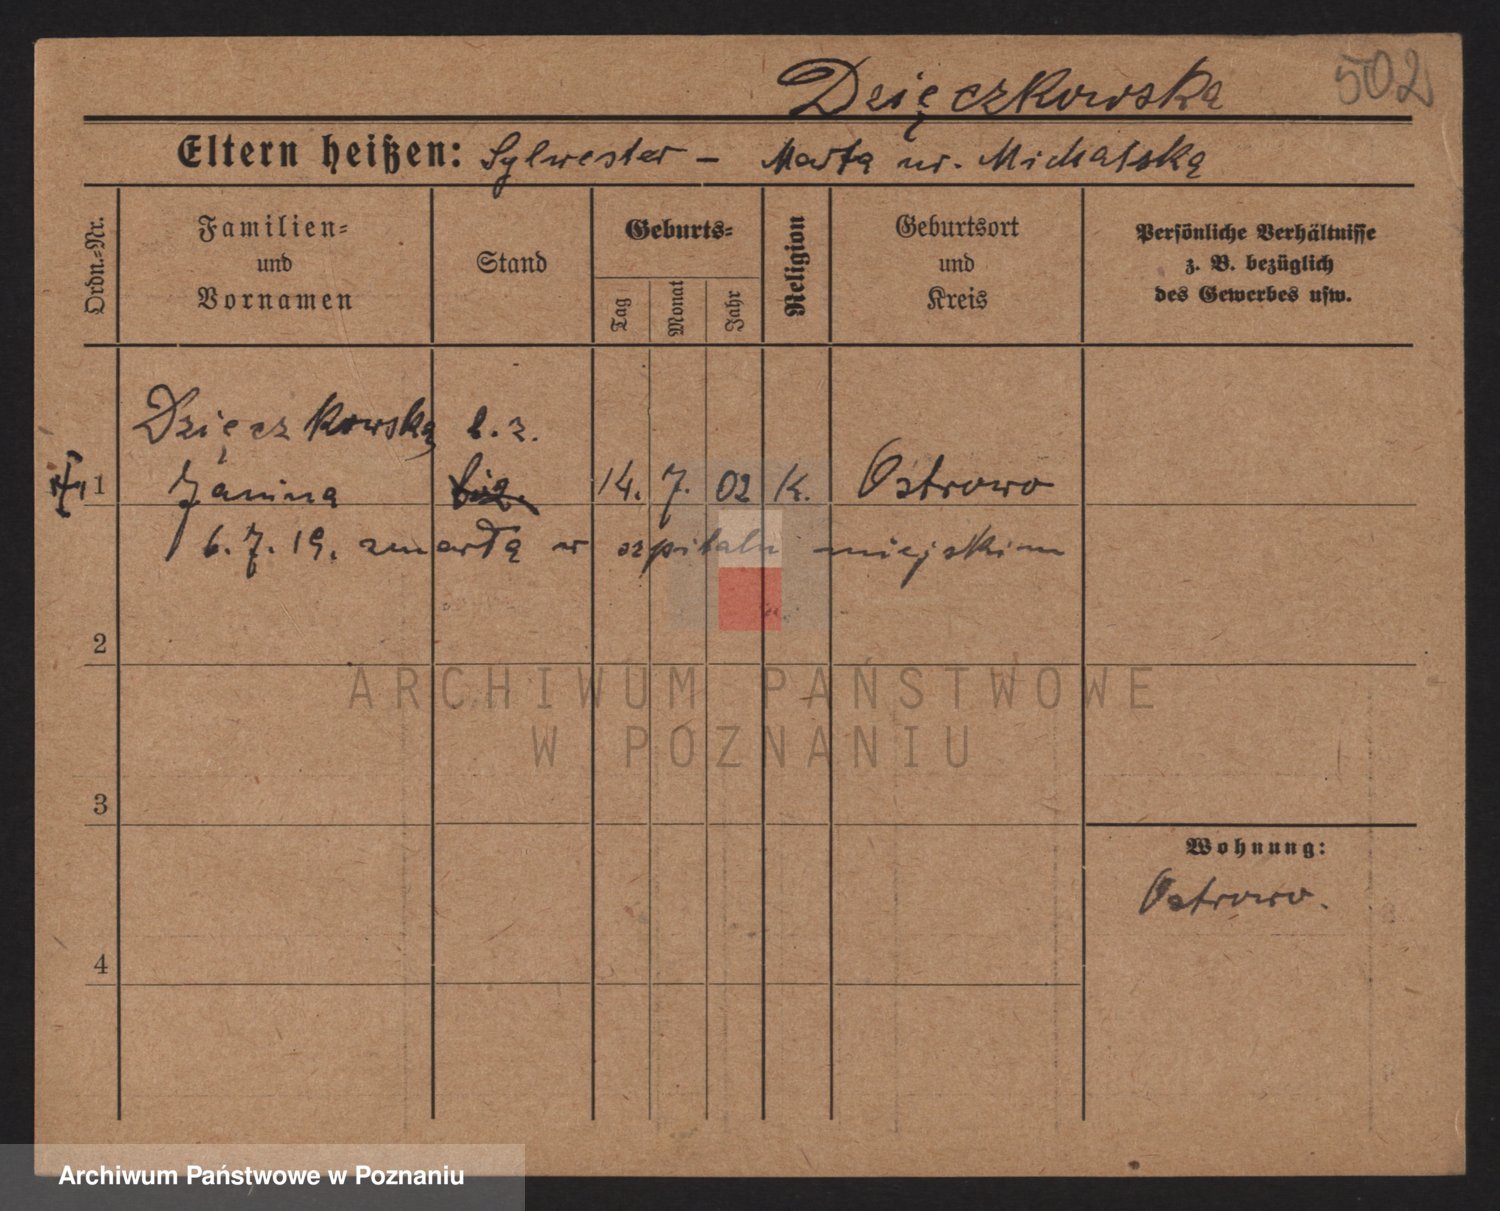 502
Dzięczkowska
Eltern heißen: Sylwester – Marta ur. Michalska
Ordn.-Nr.
Familien- und Vornamen
Stand
Geburts-
Tag
Monat
Jahr
Religion
Geburtsort und Kreis
Persönliche Verhältnisse z. B. bezüglich des Gewerbes usw.
Dzięczkowska b. z.
1 Janina 14. 7. 02 K. Ostrowo
6. 7. 19. zmarła w szpitalu miejskim
2
ARCHIWUM PAŃSTWOWE
W POZNANIU
3
Wohnung:
Ostrowo.
4
Archiwum Państwowe w Poznaniu